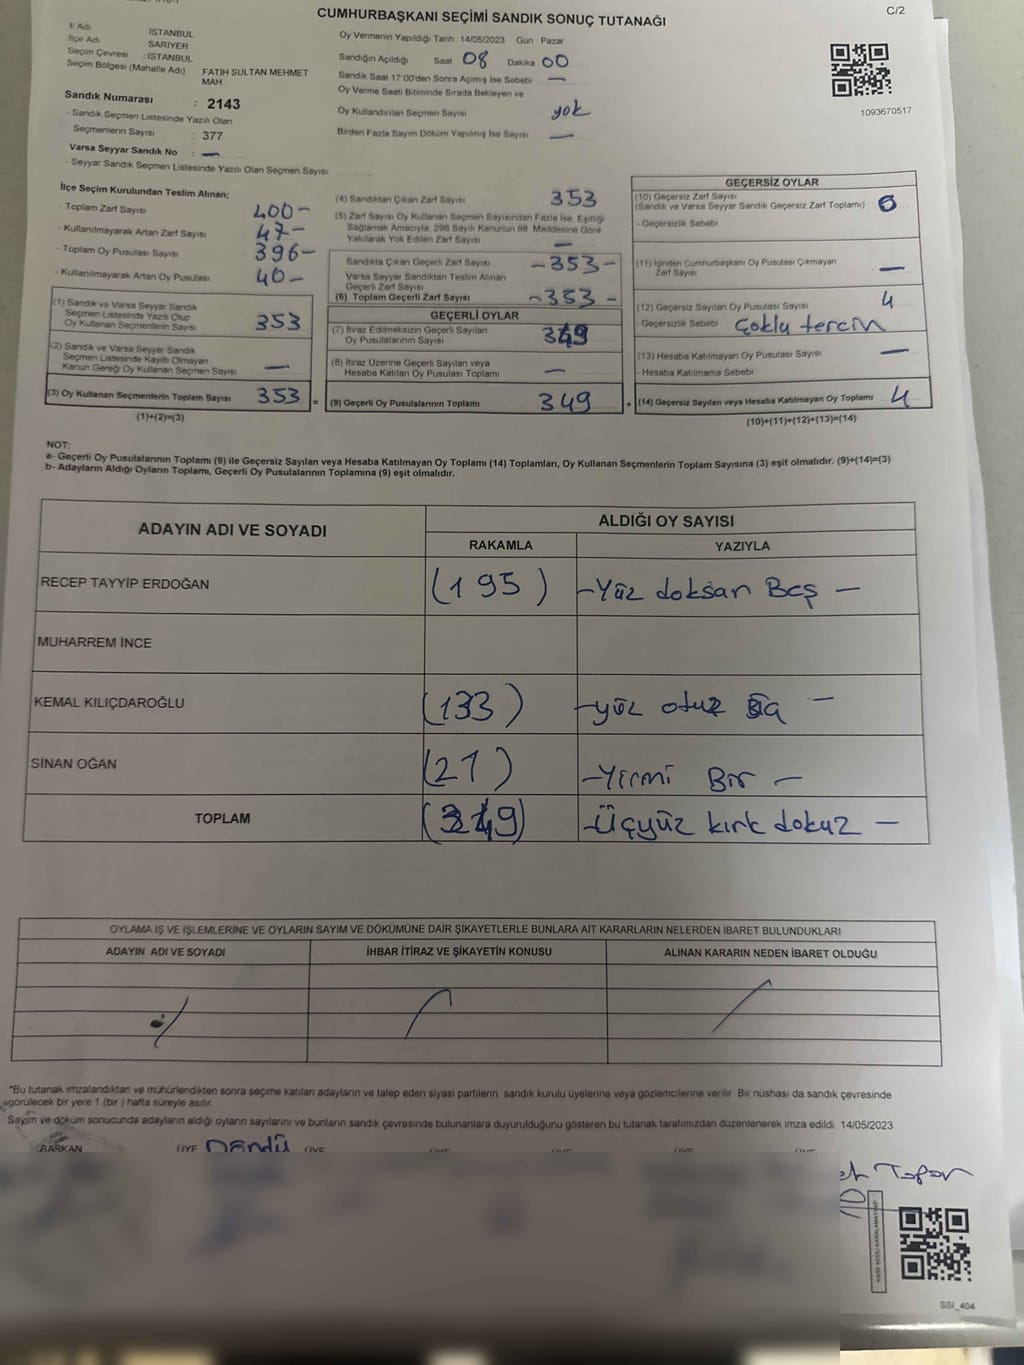 C/2
CUMHURBAŞKANI SEÇİMİ SANDIK SONUÇ TUTANAĞI
İl Adı İSTANBUL
İlçe Adı SARIYER
Seçim Çevresi : İSTANBUL
Seçim Bölgesi (Mahalle Adı) FATİH SULTAN MEHMET MAH
Sandık Numarası : 2143
- Sandık Seçmen Listesinde Yazılı Olan
Seçmenlerin Sayısı : 377
Varsa Seyyar Sandık No : —
- Seyyar Sandık Seçmen Listesinde Yazılı Olan Seçmen Sayısı
Oy Vermenin Yapıldığı Tarih :14/05/2023 Gün Pazar
Sandığın Açıldığı Saat 08 Dakika 00
Sandık Saat 17:00'den Sonra Açımış İse Sebebi —
Oy Verme Saati Bitiminde Sırada Bekleyen ve
Oy Kullandırılan Seçmen Sayısı yok
Birden Fazla Sayım Döküm Yapılmış İse Sayısı —
1093670517
İlçe Seçim Kurulundan Teslim Alınan;
- Toplam Zarf Sayısı 400-
- Kullanılmayarak Artan Zarf Sayısı 47-
- Toplam Oy Pusulası Sayısı 396-
- Kullanılmayarak Artan Oy Pusulası 40-
(1) Sandık ve Varsa Seyyar Sandık
Seçmen Listesinde Yazılı Olup
Oy Kullanan Seçmenlerin Sayısı 353
(2) Sandık ve Varsa Seyyar Sandık
Seçmen Listesinde Kayıtlı Olmayan
Kanun Gereği Oy Kullanan Seçmen Sayısı —
(3) Oy Kullanan Seçmenlerin Toplam Sayısı 353 =
(1)+(2)=(3)
(4) Sandıktan Çıkan Zarf Sayısı 353
(5) Zarf Sayısı Oy Kullanan Seçmen Sayısından Fazla İse, Eşitliği
Sağlamak Amacıyla, 298 Sayılı Kanunun 98. Maddesine Göre
Yakılarak Yok Edilen Zarf Sayısı —
Sandıkta Çıkan Geçerli Zarf Sayısı -353-
Varsa Seyyar Sandıktan Teslim Alınan
Geçerli Zarf Sayısı
(6) Toplam Geçerli Zarf Sayısı -353-
GEÇERLİ OYLAR
(7) İtiraz Edilmeksizin Geçerli Sayılan
Oy Pusulalarının Sayısı 349
(8) İtiraz Üzerine Geçerli Sayılan veya
Hesaba Katılan Oy Pusulası Toplamı —
(9) Geçerli Oy Pusulalarının Toplamı 349 +
GEÇERSİZ OYLAR
(10) Geçersiz Zarf Sayısı
(Sandık ve Varsa Seyyar Sandık Geçersiz Zarf Toplamı)
- Geçersizlik Sebebi
(11) İçinden Cumhurbaşkanı Oy Pusulası Çıkmayan
Zarf Sayısı —
(12) Geçersiz Sayılan Oy Pusulası Sayısı 4
- Geçersizlik Sebebi Çoklu tercih
(13) Hesaba Katılmayan Oy Pusulası Sayısı —
- Hesaba Katılmama Sebebi
(14) Geçersiz Sayılan veya Hesaba Katılmayan Oy Toplamı 4
(10)+(11)+(12)+(13)=(14)
NOT:
a- Geçerli Oy Pusulalarının Toplamı (9) ile Geçersiz Sayılan veya Hesaba Katılmayan Oy Toplamı (14) Toplamları, Oy Kullanan Seçmenlerin Toplam Sayısına (3) eşit olmalıdır. (9)+(14)=(3)
b- Adayların Aldığı Oyların Toplamı, Geçerli Oy Pusulalarının Toplamına (9) eşit olmalıdır.
ADAYIN ADI VE SOYADI
ALDIĞI OY SAYISI
RAKAMLA YAZIYLA
RECEP TAYYİP ERDOĞAN (195) -Yüz doksan Beş -
MUHARREM İNCE
KEMAL KILIÇDAROĞLU (133) -yüz otuz -
SİNAN OĞAN (21) -Yirmi Bir -
TOPLAM (349) -Üçyüz kırk dokuz -
OYLAMA İŞ VE İŞLEMLERİNE VE OYLARIN SAYIM VE DÖKÜMÜNE DAİR ŞİKAYETLERLE BUNLARA AİT KARARLARIN NELERDEN İBARET BULUNDUKLARI
ADAYIN ADI VE SOYADI İHBAR İTİRAZ VE ŞİKAYETİN KONUSU ALINAN KARARIN NEDEN İBARET OLDUĞU
"Bu tutanak imzalandıktan ve mühürlendikten sonra seçime katılan adayların ve talep eden siyasi partilerin sandık kurulu üyelerine veya gözlemcilerine verilir. Bir nüshası da sandık çevresinde
görülecek bir yere 1 (bir) hafta süreyle asılır.
Sayım ve döküm sonucunda adayların aldığı oyların sayılarını ve bunların sandık çevresinde bulunanlara duyurulduğunu gösteren bu tutanak tarafımızdan düzenlenerek imza edildi. 14/05/2023
BAŞKAN ÜYE ÜYE ÜYE ÜYE ÜYE ÜYE
SSI_404